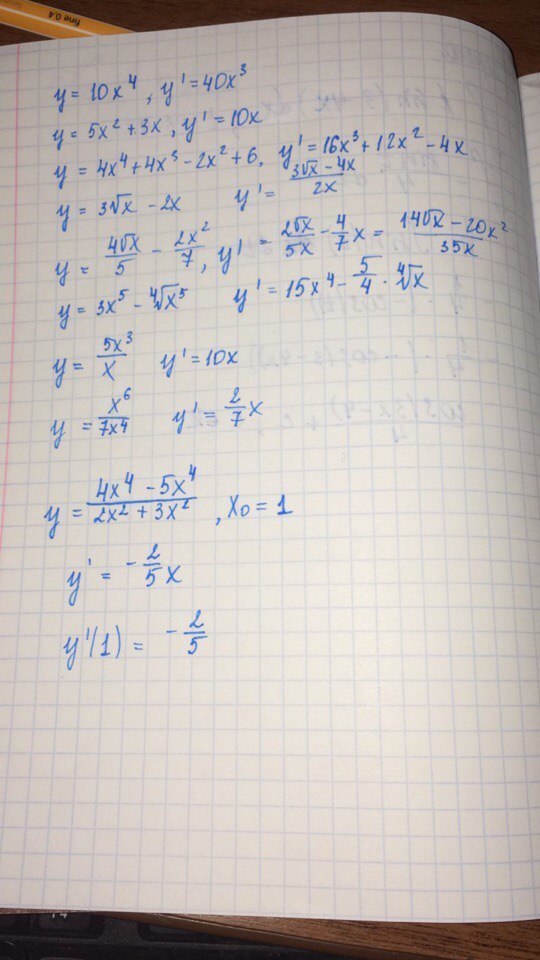 fine 0.4
y = 10x⁴, y' = 40x³
y = 5x² + 3x, y' = 10x
y = 4x⁴ + 4x³ - 2x² + 6, y' = 16x³ + 12x² - 4x
y = 3√x - 2x y' = (3√x - 4x)/(2x)
y = 4√x/5 - 2x²/7, y' = 2√x/(5x) - 4/7 x = (14√x - 20x²)/(35x)
y = 3x⁵ - ⁴√x⁵ y' = 15x⁴ - 5/4 · ⁴√x
y = 5x³/x y' = 10x
y = x⁶/(7x⁴) y' = 2/7 x
y = (4x⁴ - 5x⁴)/(2x² + 3x²), x₀ = 1
y' = -2/5 x
y'(1) = -2/5